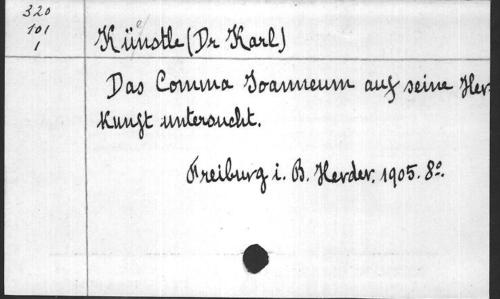 320
101
1
Künstle (Dr Karl)
Das Comma Joanneum auf seine Her
kunft untersucht.
Freiburg i. B. Herder. 1905. 8°.